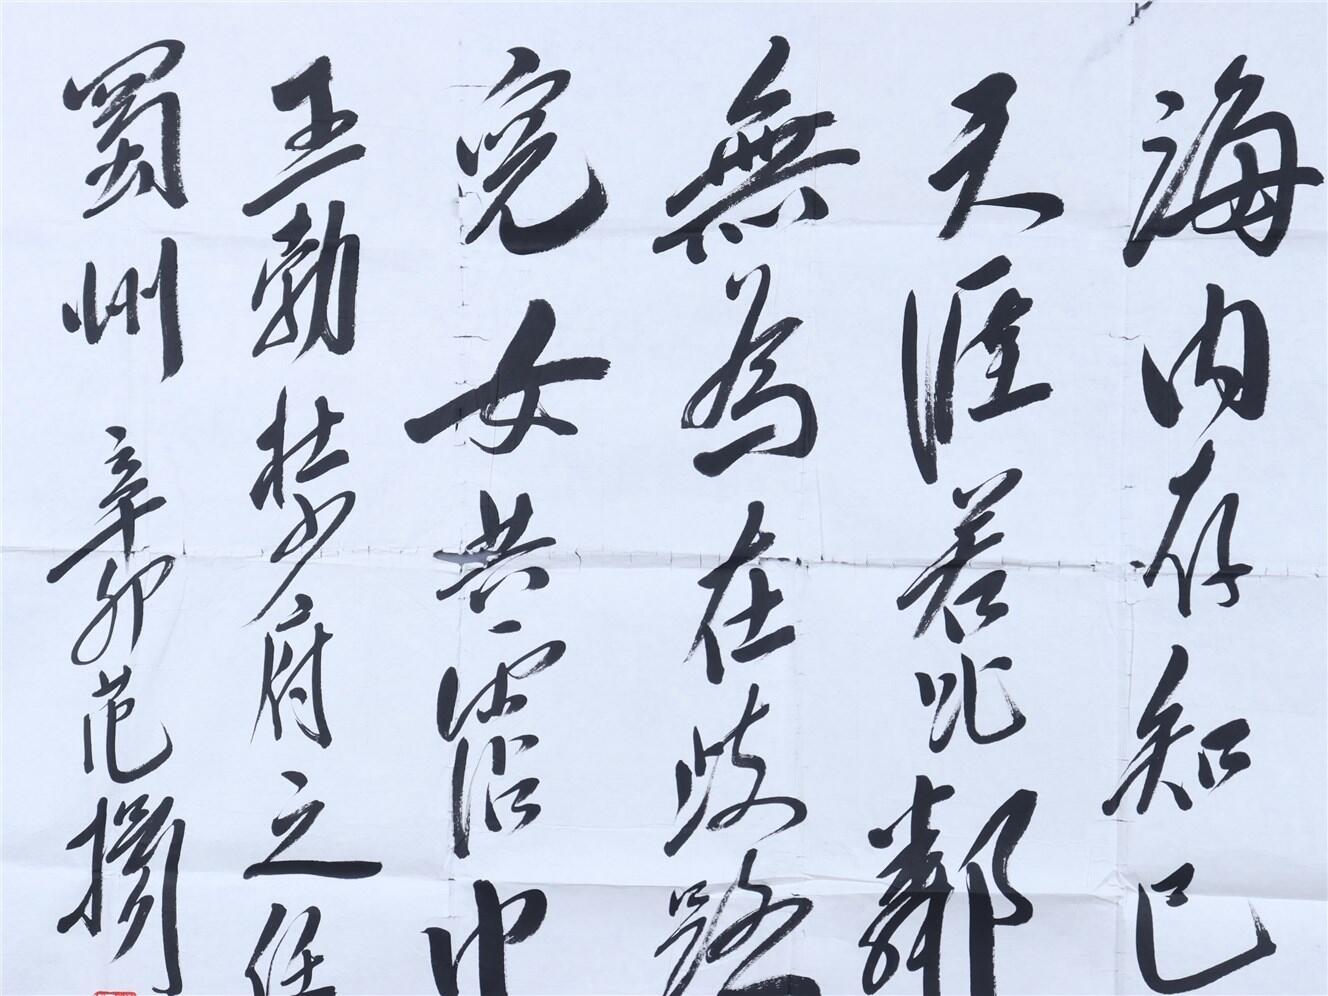 海内存知己
天涯若比鄰
無為在歧路
兒女共霑巾
王勃杜少府之任
蜀州 辛卯 范揚